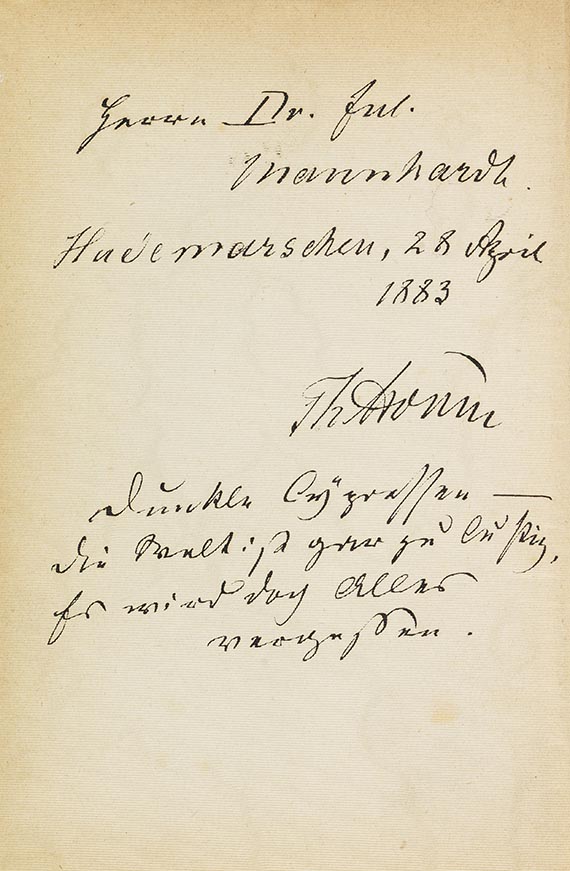 Herrn Dr. Jul.
Mannhardt.
Hademarschen, 28 April
1883
ThStorm
Dunkle Cypressen —
Die Welt ist gar zu lustig,
Es wird doch Alles
vergessen.